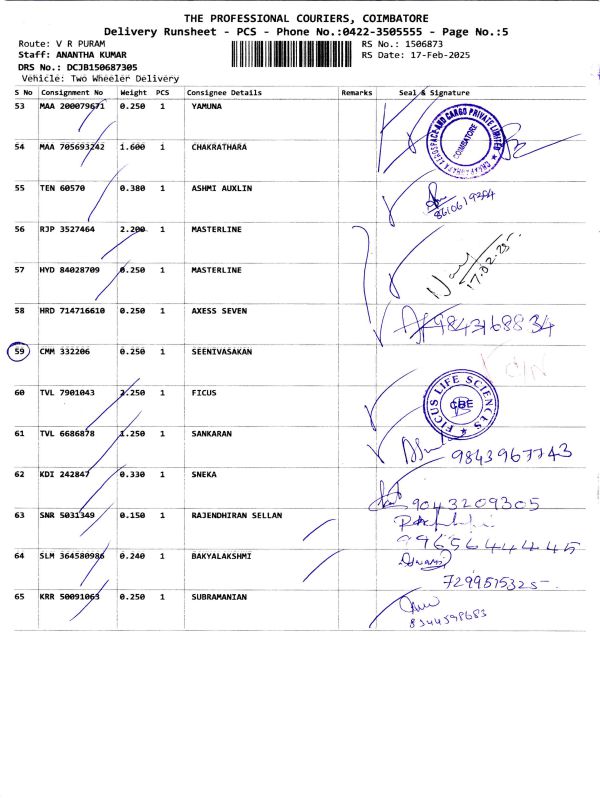 THE PROFESSIONAL COURIERS, COIMBATORE
Delivery Runsheet - PCS - Phone No.:0422-3505555 - Page No.:5
Route: V R PURAM RS No.: 1506873
Staff: ANANTHA KUMAR RS Date: 17-Feb-2025
DRS No.: DCJB150687305
Vehicle: Two Wheeler Delivery
S No Consignment No Weight PCS Consignee Details Remarks Seal & Signature
53 MAA 200079671 0.250 1 YAMUNA
COIMBATORE
54 MAA 705693242 1.600 1 CHAKRATHARA
55 TEN 60570 0.380 1 ASHMI AUXLIN
56 RJP 3527464 2.200 1 MASTERLINE
17.02.25
57 HYD 84028709 0.250 1 MASTERLINE
58 HRD 714716610 0.250 1 AXESS SEVEN
9843168834
59 CMM 332206 0.250 1 SEENIVASAKAN
60 TVL 7901043 2.250 1 FICUS
FICUS LIFE SCIENCES
CBE
61 TVL 6686878 1.250 1 SANKARAN
9843967743
62 KDI 242847 0.330 1 SNEKA
9043209305
63 SNR 5031349 0.150 1 RAJENDHIRAN SELLAN
9965644445
64 SLM 364580986 0.240 1 BAKYALAKSHMI
7299515325
65 KRR 50091063 0.250 1 SUBRAMANIAN
8344598683